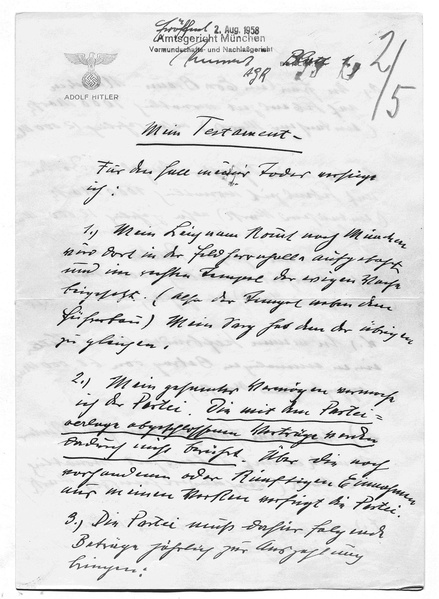 Eröffnet 2. Aug. 1958
Amtsgericht München
Vormundschafts- und Nachlaßgericht
AGR
2/5
ADOLF HITLER
Mein Testament.
Für den Fall meines Todes verfüge
ich:
1.) Mein Leichnam kommt nach München
wird dort in der Feldherrnhalle aufgebahrt
und im rechten Tempel der ewigen Wache
beigesetzt. (also der Tempel neben dem
Führerbau) Mein Sarg hat dem der übrigen
zu gleichen.
2.) Mein gesamtes Vermögen vermache
ich der Partei. Die mit dem Partei=
verlage abgeschlossenen Verträge werden
dadurch nicht berührt. Über die noch
vorhandenen oder künftigen Einnahmen
aus meinen Werken verfügt die Partei.
3.) Die Partei muß dafür folgende
Beträge jährlich zur Auszahlung
bringen: